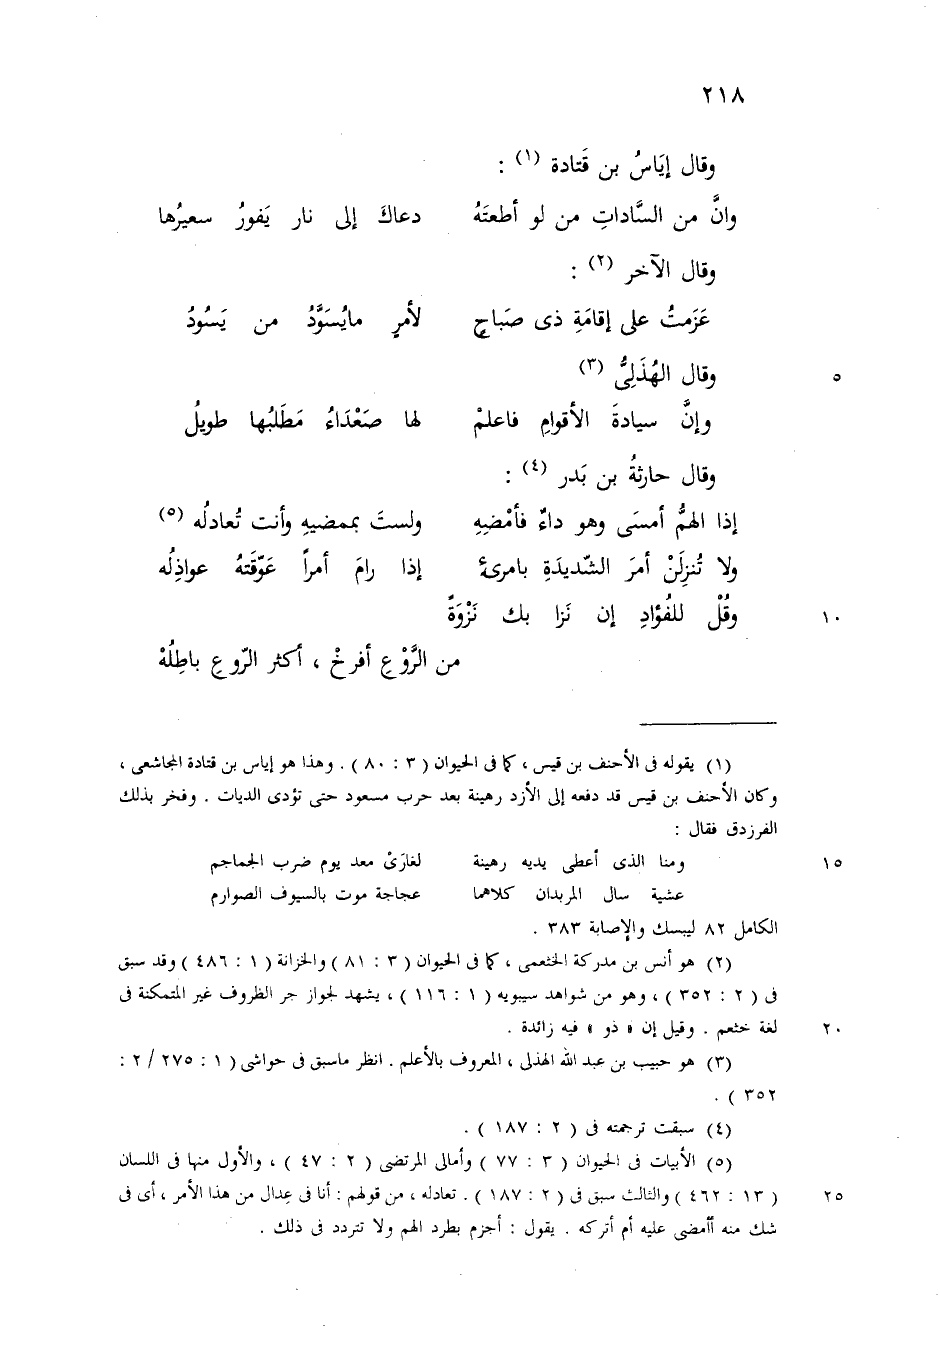 ٢١٨
وقال إيَاسُ بن قَتادة (١) :
وانَّ من السَّاداتِ من لو أطعتَهُ دعاكَ إلى نار يَفورُ سعيرُها
وقال الآخر (٢) :
عَزَمتُ على إقامَةِ ذى صَباحٍ لأمرٍ مايُسَوَّدُ من يَسُودُ
وقال الهُذَلِىُّ (٣) ٥
وإنَّ سيادةَ الأقوامِ فاعلمْ لها صَعْدَاءُ مَطَلَبُها طويلُ
وقال حارثةُ بن بَدر (٤) :
إذا الهمُّ أمسَى وهو داءٌ فأمْضِهِ ولستَ بممضيهِ وأنت تُعادلُه (٥)
ولا تُنزِلَنْ أمرَ الشّديدَةِ بامرئٍ إذا رامَ أمراً عَوّقَتهُ عواذِلُه
وقُلْ للفُؤادِ إن نَزا بك نَزْوَةً ١٠
من الرَّوْعِ أفرخْ ، أكثر الرّوعِ باطِلُهْ
(١) يقوله فى الأحنف بن قيس ، كما فى الحيوان ( ٣ : ٨٠ ) . وهذا هو إياس بن قتادة المجاشعى ،
وكان الأحنف بن قيس قد دفعه إلى الأزد رهينة بعد حرب مسعود حتى تؤدى الديات . وفخر بذلك
الفرزدق فقال :
ومنا الذى أعطى يديه رهينة لغازَىْ معد يوم ضرب الجماجم ١٥
عشية سال المربدان كلاهما عجاجة موت بالسيوف الصوارم
الكامل ٨٢ ليبسك والإصابة ٣٨٣ .
(٢) هو أنس بن مدركة الخثعمى ، كما فى الحيوان ( ٣ : ٨١ ) والخزانة ( ١ : ٤٨٦ ) وقد سبق
فى ( ٢ : ٣٥٢ ) ، وهو من شواهد سيبويه ( ١ : ١١٦ ) ، يشهد لجواز جر الظروف غير المتمكنة فى
لغة خثعم . وقيل إن « ذو » فيه زائدة . ٢٠
(٣) هو حبيب بن عبد الله الهذلى ، المعروف بالأعلم . انظر ماسبق فى حواشى ( ١ : ٢٧٥ / ٢ :
٣٥٢ ) .
(٤) سبقت ترجمته فى ( ٢ : ١٨٧ ) .
(٥) الأبيات فى الحيوان ( ٣ : ٧٧ ) وأمالى المرتضى ( ٢ : ٤٧ ) ، والأول منها فى اللسان
( ١٣ : ٤٦٢ ) والثالث سبق فى ( ٢ : ١٨٧ ) . تعادله ، من قولهم : أنا فى عِدال من هذا الأمر ، أى فى ٢٥
شك منه أأمضى عليه أم أتركه . يقول : أجزم بطرد الهم ولا تتردد فى ذلك .